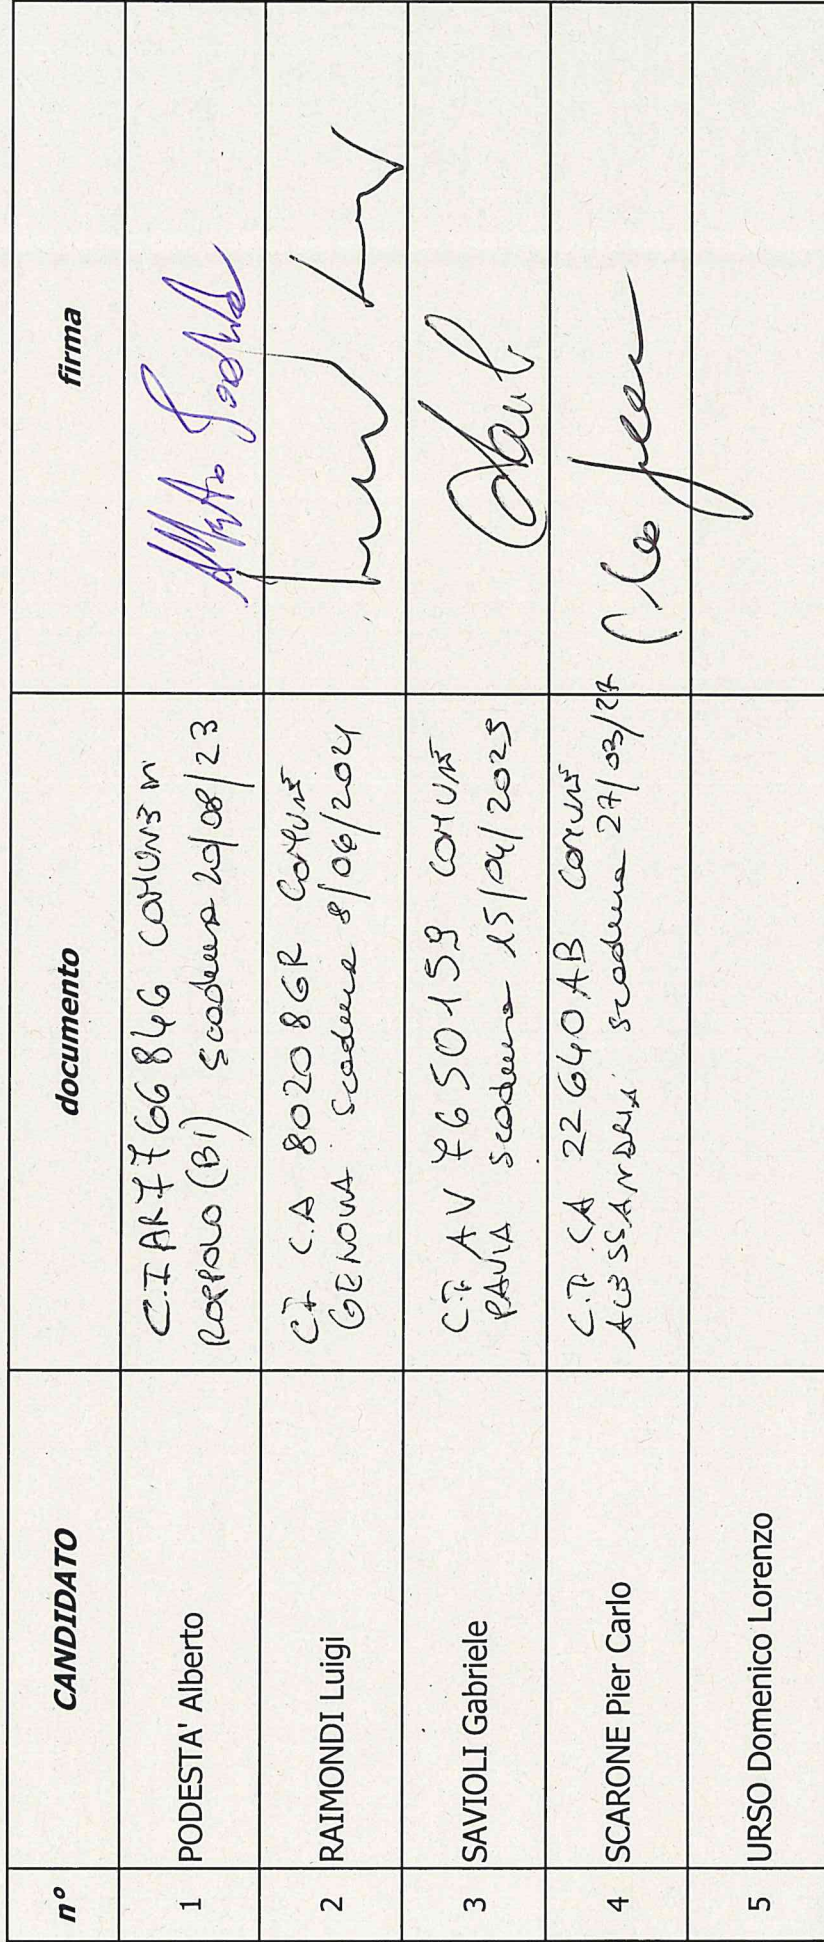 n° CANDIDATO documento firma
1 PODESTA' Alberto C.I AR7766846 COMUNE DI
ROPPOLO (BI) scadenza 20/08/23
2 RAIMONDI Luigi CI C.A 80208GR COMUNE
GENOVA scadenza 8/06/2021
3 SAVIOLI Gabriele C.I. AV 7650159 COMUNE
PAVIA scadenza 15/04/2029
4 SCARONE Pier Carlo C.I. CA 22640AB COMUNE
ALESSANDRIA scadenza 27/03/27
5 URSO Domenico Lorenzo